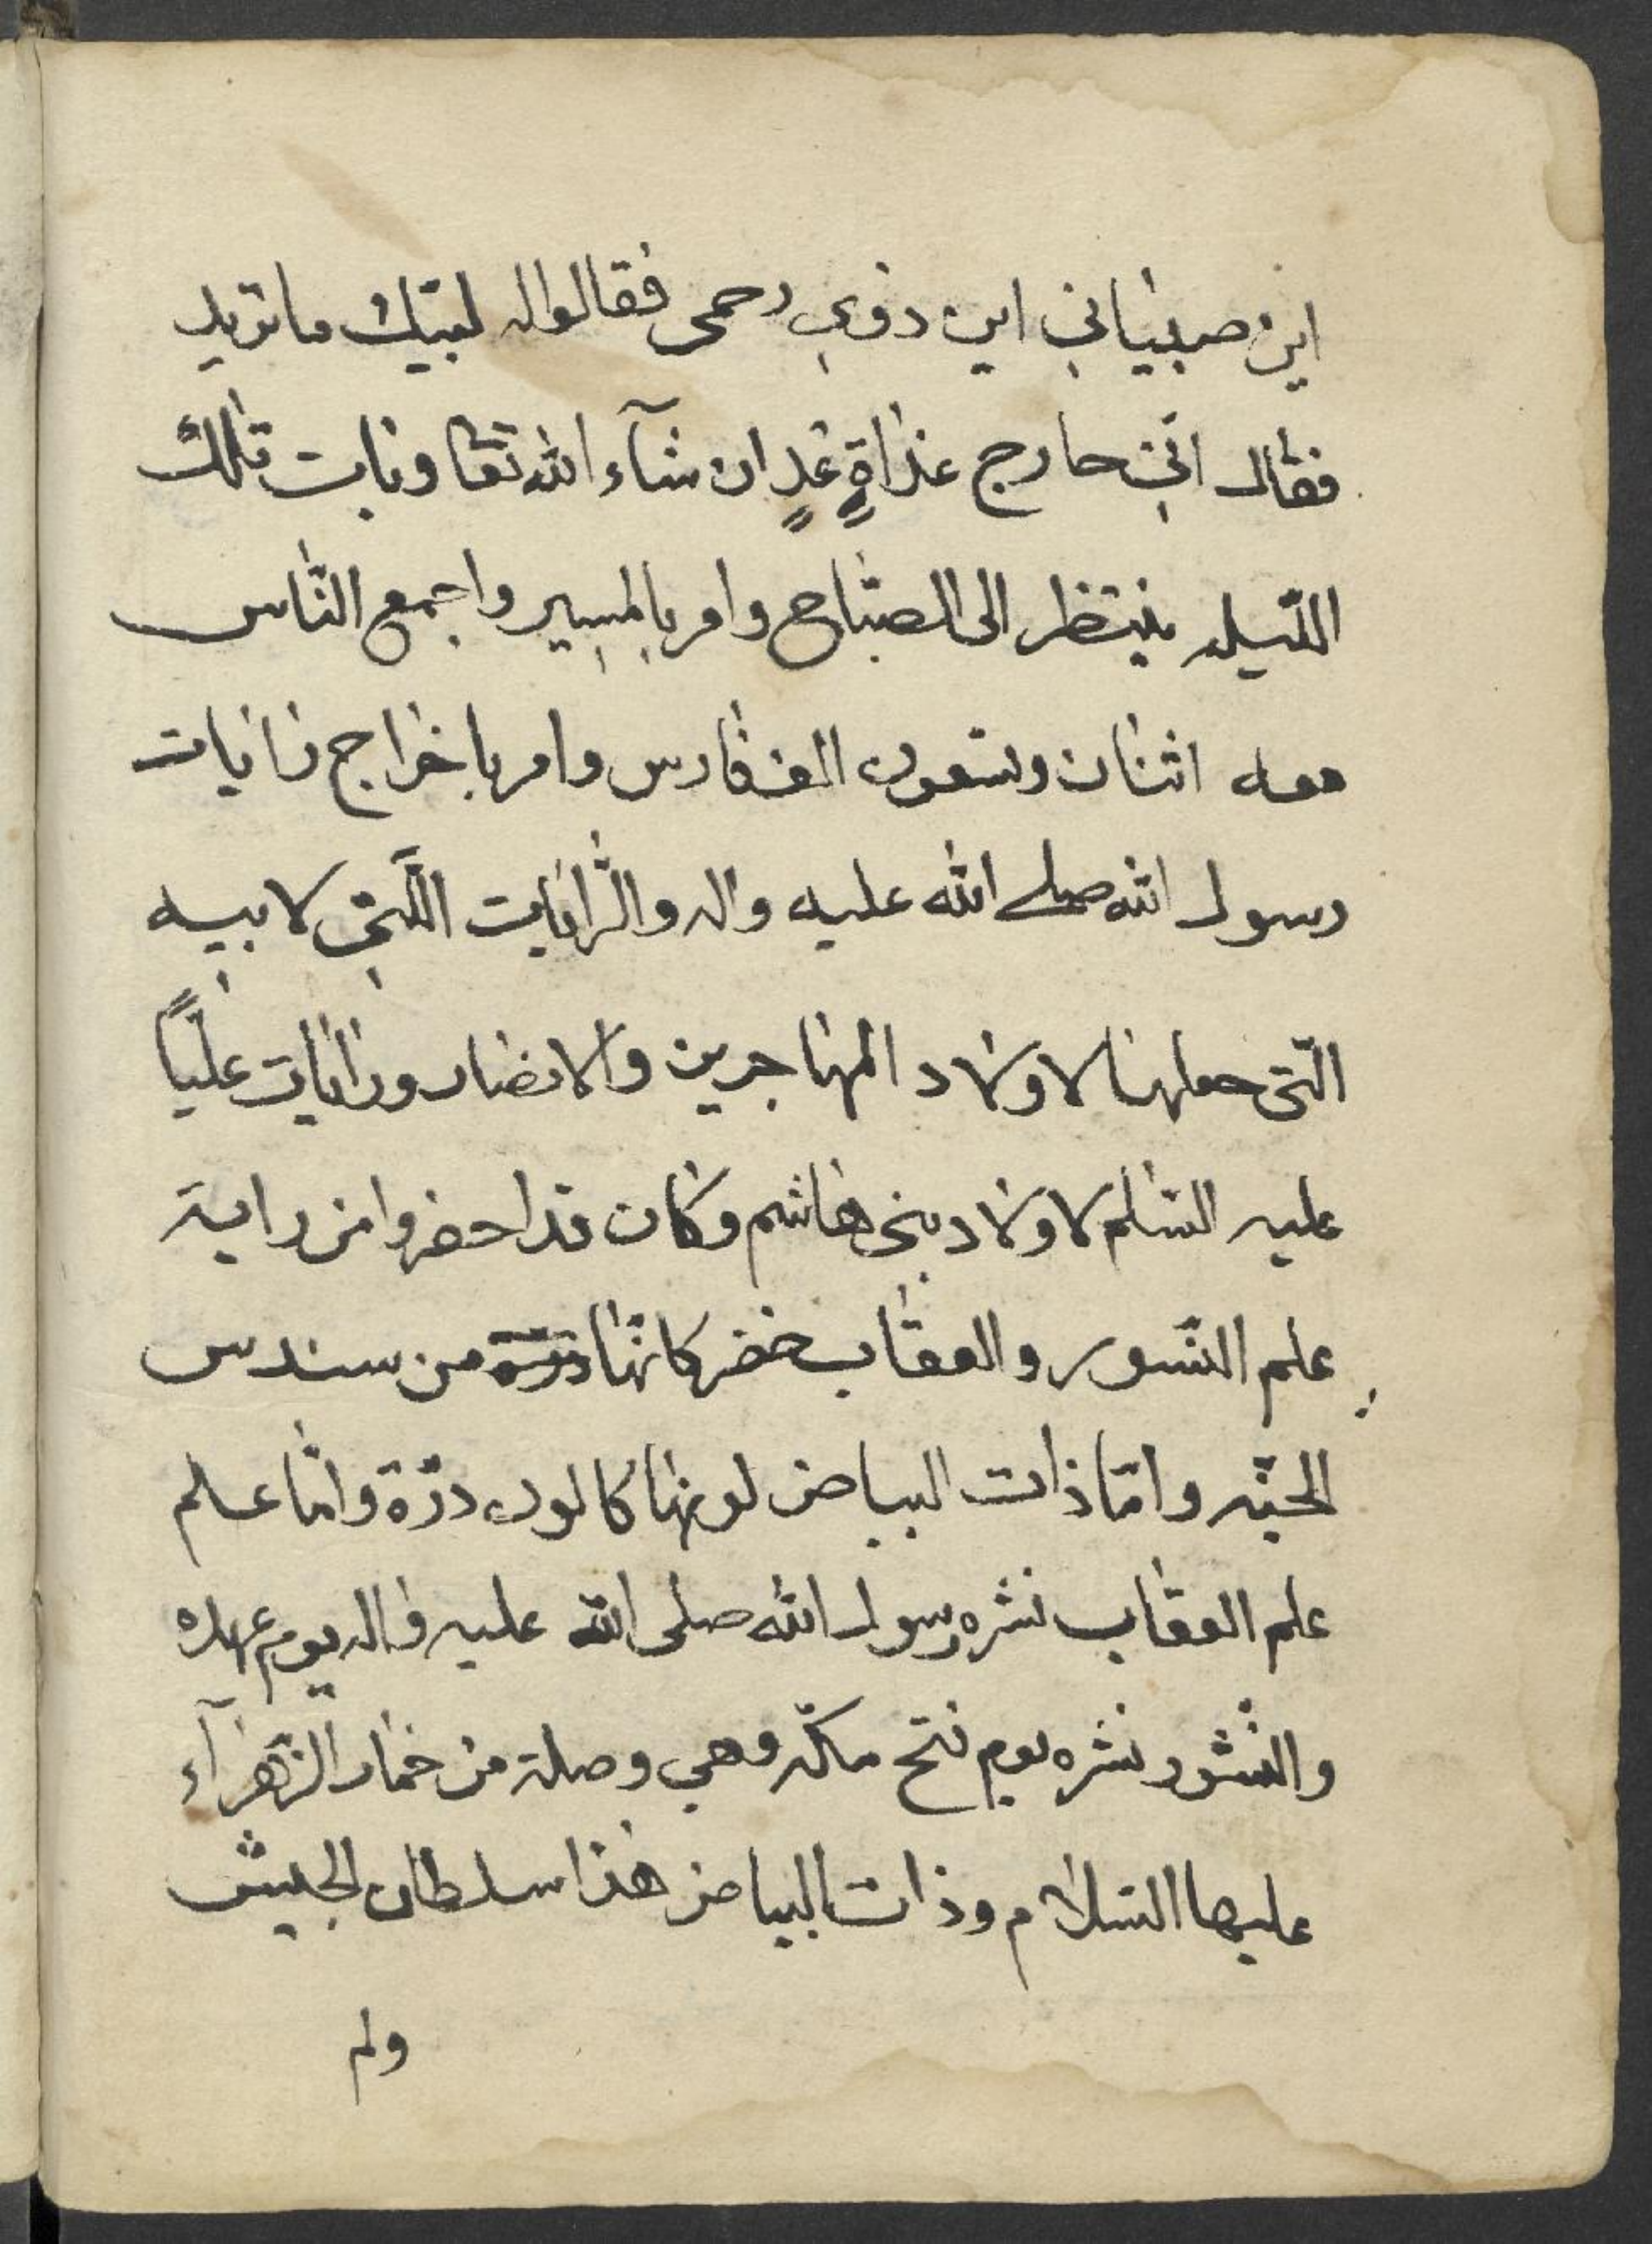 اين صبياني اين ذوي رحمى فقالوا له لبيك ما تريد
فقال انّي خارج غداةٍ غدٍ ان شآء الله تعا وبات تلك
اللّيله ينتظر الى الصّباح وامر بالمسير واجمع النّاس
معه اثنان وتسعون الف فارس وامر باخراج رايات
رسول الله صلى الله عليه واله والرّايات الّتي لابيه
التّى جعلها لاولاد المهاجرين والانصار ورايات عليّاً
عليه السّلم لاولاد بني هاشم وكان قد احضروا من راية
علم النّسور والعقاب خضر كانّها من سندس
الجنّه وامّا ذات البياض لونها كالون درّة وامّا علم
علم العقاب نشره رسول الله صلى الله عليه واله يوم عهده
والنّشور نشره يوم فتح مكّه وهي وصلة من خمار الزّهرآء
عليها السّلام وذات البياض هذا سلطان الجيش
ولم